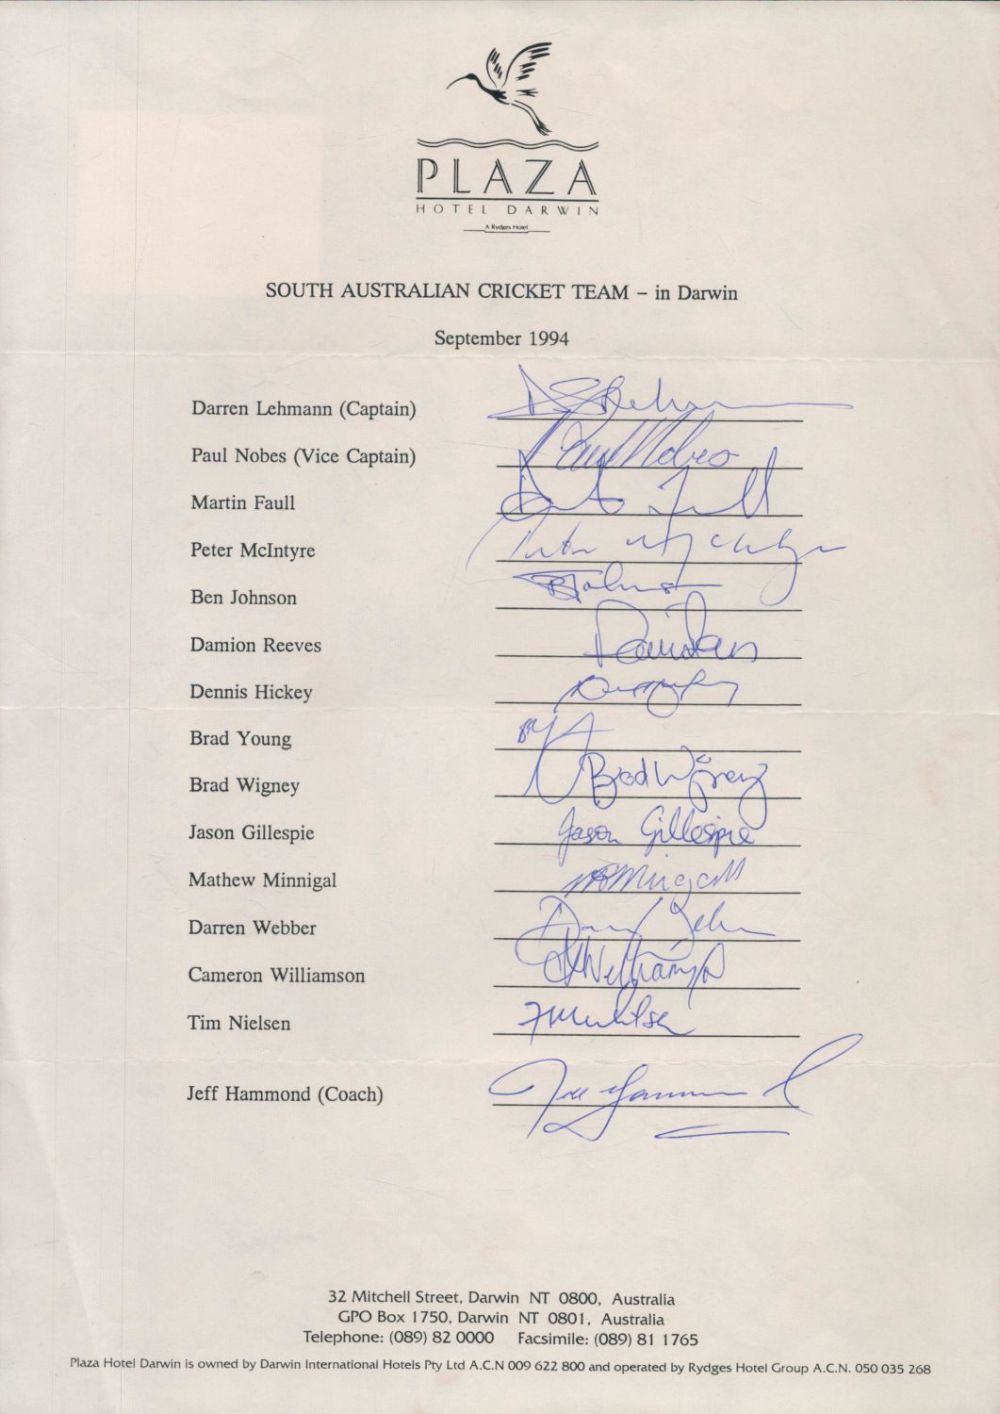 PLAZA
HOTEL DARWIN
A Rydges Hotel
SOUTH AUSTRALIAN CRICKET TEAM – in Darwin
September 1994
Darren Lehmann (Captain)
Paul Nobes (Vice Captain) Paul Nobes
Martin Faull
Peter McIntyre
Ben Johnson
Damion Reeves
Dennis Hickey
Brad Young
Brad Wigney Brad Wigney
Jason Gillespie Jason Gillespie
Mathew Minnigal
Darren Webber
Cameron Williamson
Tim Nielsen
Jeff Hammond (Coach)
32 Mitchell Street, Darwin NT 0800, Australia
GPO Box 1750, Darwin NT 0801, Australia
Telephone: (089) 82 0000 Facsimile: (089) 81 1765
Plaza Hotel Darwin is owned by Darwin International Hotels Pty Ltd A.C.N 009 622 800 and operated by Rydges Hotel Group A.C.N. 050 035 268